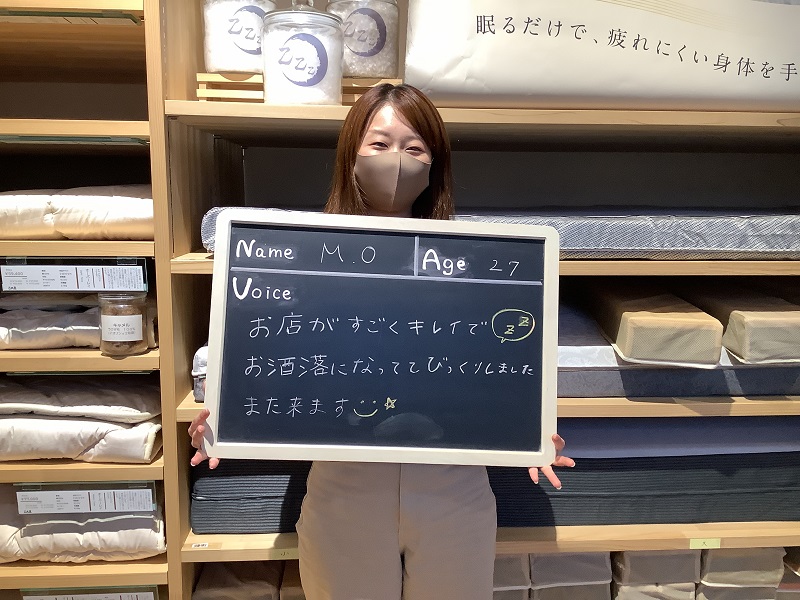 ZZZ
ZZZ
ZZZ
眠るだけで、疲れにくい身体を手
Name M.O
Age 27
Voice
お店がすごくキレイで zz
お洒落になっててびっくりしました
また来ます